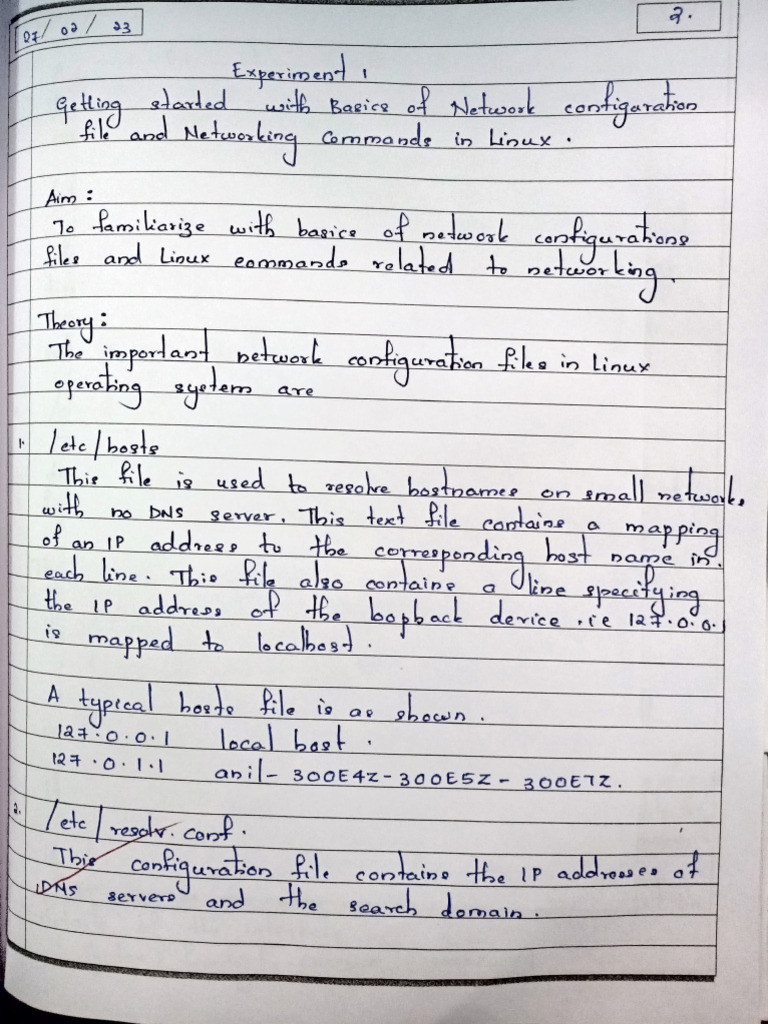 07/02/23
2.
Experiment 1
Getting started with Basics of Network configuration
file and Networking Commands in Linux.
Aim:
To familiarize with basics of network configurations
files and Linux commands related to networking.
Theory:
The important network configuration files in Linux
operating system are
1. /etc/hosts
This file is used to resolve hostnames on small networks
with no DNS server. This text file contains a mapping
of an IP address to the corresponding host name in.
each line. This file also contains a line specifying
the IP address of the loopback device .ie 127.0.0.1
is mapped to localhost.
A typical hosts file is as shown.
127.0.0.1 local host.
127.0.1.1 anil-300E4Z-300E5Z-300E7Z.
2. /etc/resolv.conf.
This configuration file contains the IP addresses of
DNS servers and the search domain.